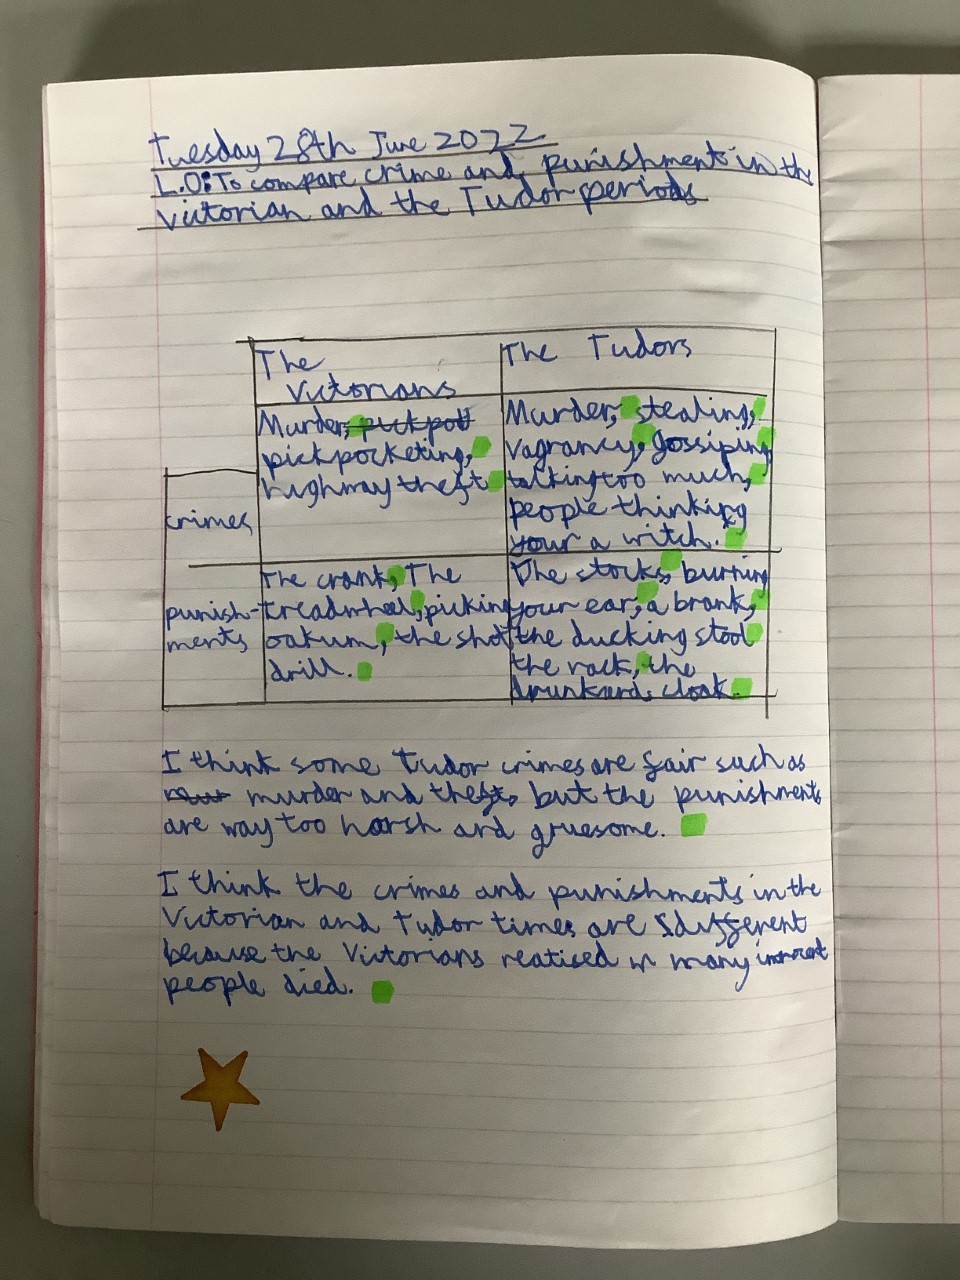 Tuesday 28th June 2022
L.O: To compare crime and punishment in the
Victorian and the Tudor periods
The
Victorians
The Tudors
crimes
Murder, pickpott
pickpocketing,
highway theft
Murder, stealing,
vagrancy, gossiping
talking too much,
people thinking
your a witch.
punish-
ments
The crank, The
treadwheel, picking
oakum, the shot
drill.
The stocks, burning
your ear, a brank,
the ducking stool
the rack, the
drunkards cloak.
I think some Tudor crimes are fair such as
murder and theft, but the punishments
are way too harsh and gruesome.
I think the crimes and punishments in the
Victorian and Tudor times are different
because the Victorians realised many innocent
people died.